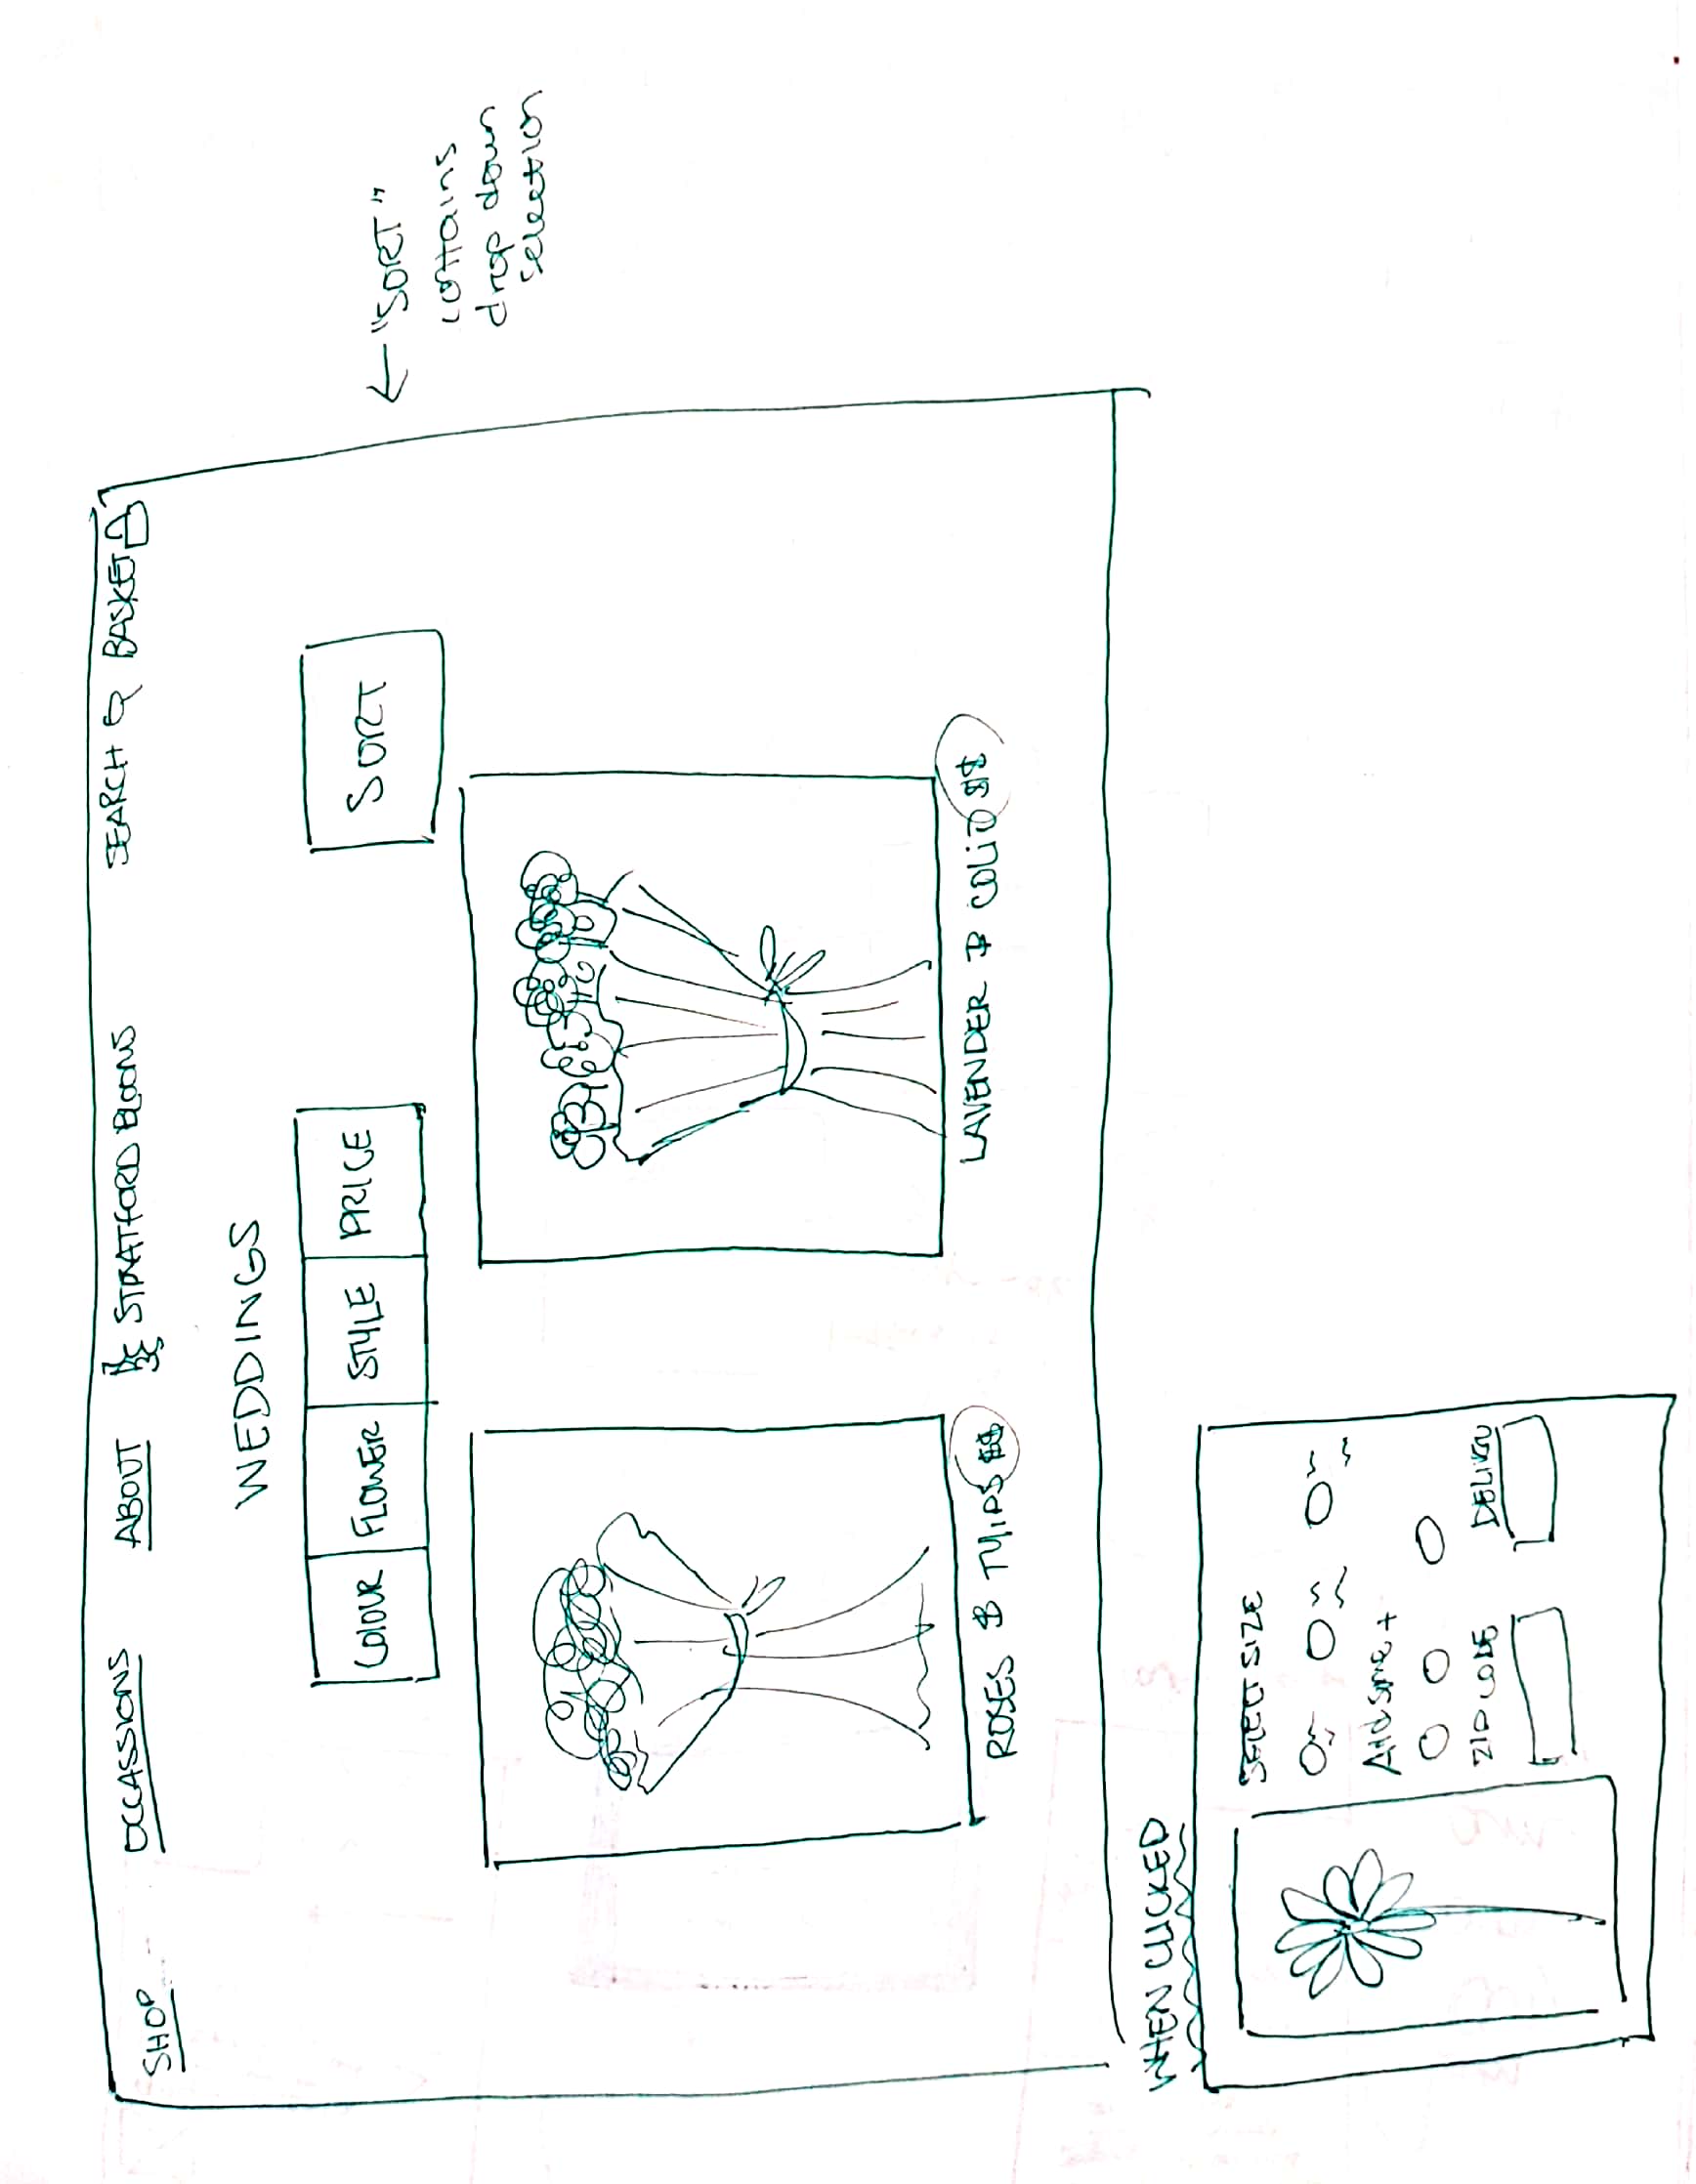 SHOP OCCASSIONS ABOUT STRATFORD BLOOMS SEARCH BASKET
WEDDINGS
COLOUR FLOWER STYLE PRICE SORT
← "SORT"
contains
drop down
selection
ROSES & TULIPS $$
LAVENDER &
WHEN CLICKED
SELECT SIZE
ZIP CODE DELIVERY